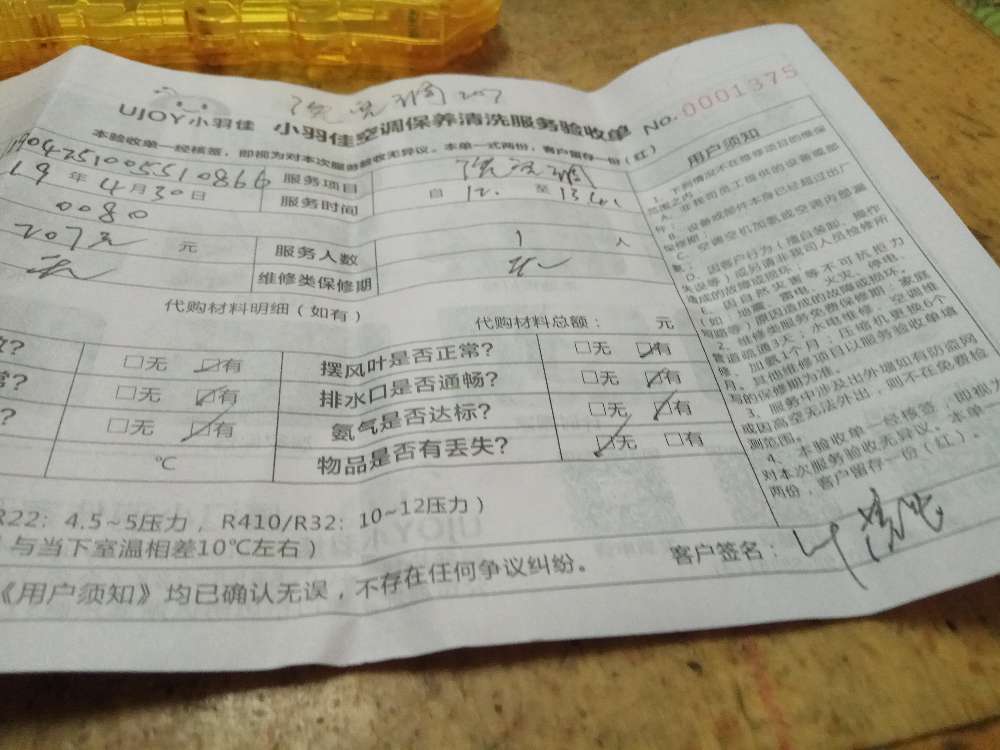 UJOY小羽佳 小羽佳空调保养清洗服务验收单 No.0001375
本验收单一经核签，即视为对本次服务验收无异议。本单一式两份，客户留存一份（红）
服务项目
19年4月30日 服务时间 自12. 至
0080
207元 元 服务人数 1 人
维修类保修期
代购材料明细（如有） 代购材料总额： 元
? □无 ☑有 摆风叶是否正常? □无 ☑有
? □无 ☑有 排水口是否通畅? □无 ☑有
? □无 ☑有 氨气是否达标? □无 ☑有
℃ 物品是否有丢失? ☑无 □有
R22: 4.5~5压力，R410/R32: 10~12压力）
与当下室温相差10℃左右）
《用户须知》均已确认无误，不存在任何争议纠纷。
客户签名：
用户须知
1、下列情况不在维修项目的维保
范围之内：
A、非我司员工提供的设备或部
件；
B、设备或部件本身已经超过出厂
保修期；
C、空调空机加氨或空调内部漏
氨；
D、因客户行为（擅自装卸、操作
失误等）或另请非我司人员检修所
造成的故障或损坏；
E、因自然灾害等不可抗拒力
（如：地震、雷电、火灾、停电、
等）原因造成的故障或损坏。
2、维修类服务免费保修期：家庭
管道疏通3天；水电维修、空调维
修、加氨1个月；压缩机更换6个
月。其他维修项目以服务验收单填
写的保修期为准。
3、服务中涉及出外墙如有防盗网
或因高空无法外出，则不在免费检
测范围。
4、本验收单一经核签，即视为
对本次服务验收无异议。本单一式
两份，客户留存一份（红）。